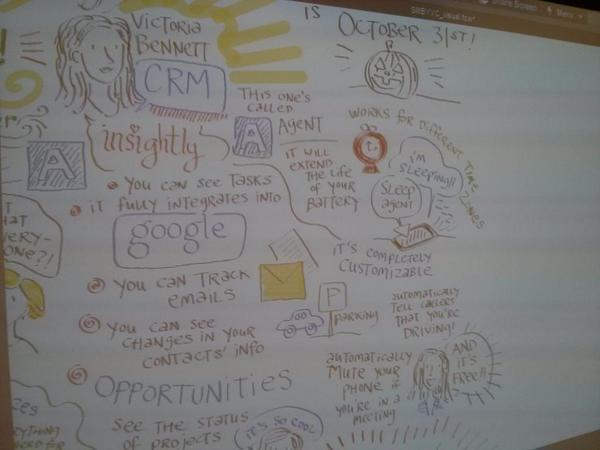 Share Screen
Menu
IS
OCTOBER 31ST!
VICTORIA
BENNETT
CRM
insightly
A
YOU CAN SEE TASKS
IT FULLY INTEGRATES INTO
google
YOU CAN TRACK
EMAILS
YOU CAN SEE
CHANGES IN YOUR
CONTACTS' INFO
OPPORTUNITIES
SEE THE STATUS
OF PROJECTS
IT'S SO COOL
THIS ONE'S
CALLED
A
AGENT
IT WILL
EXTEND
THE LIFE
OF YOUR
BATTERY
WORKS FOR DIFFERENT TIME ZONES
I'M
SLEEPING!!
SLEEP
AGENT
IT'S COMPLETELY
CUSTOMIZABLE
P
PARKING
AUTOMATICALLY
TELL CALLERS
THAT YOU'RE
DRIVING!
AUTOMATICALLY
MUTE YOUR
PHONE IF
YOU'RE IN A
MEETING
AND
IT'S
FREE!!